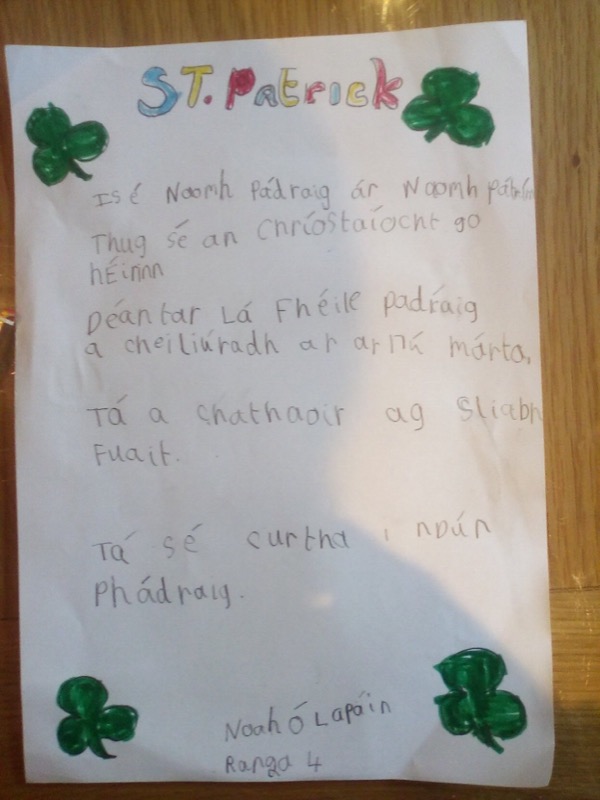 ST. Patrick
Is é Naomh Pádraig ár Naomh pátrún
Thug sé an Chríostaíocht go
hÉirinn
Déantar Lá Fhéile Padráig
a cheiliúradh ar an 17ú márta,
Tá a chathaoir ag Sliabh
Fuait.
Tá sé curtha i nDún
Phádraig.
Noah Ó Lapáin
Ranga 4